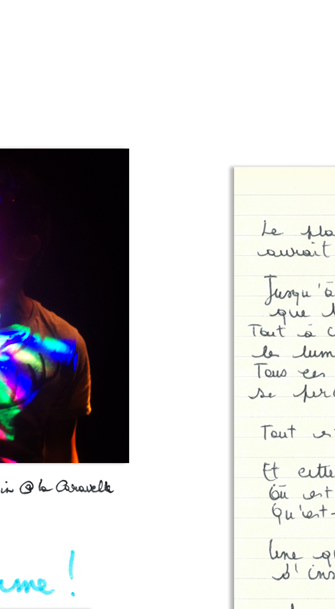 in @ la Caravelle
ame !
Le pla
aurait
Jusqu'à
que l
Tout à c
la lum
Tous ces
se perd
Tout es
Et cette
Où est
Qu'est-
Une qu
s'ins